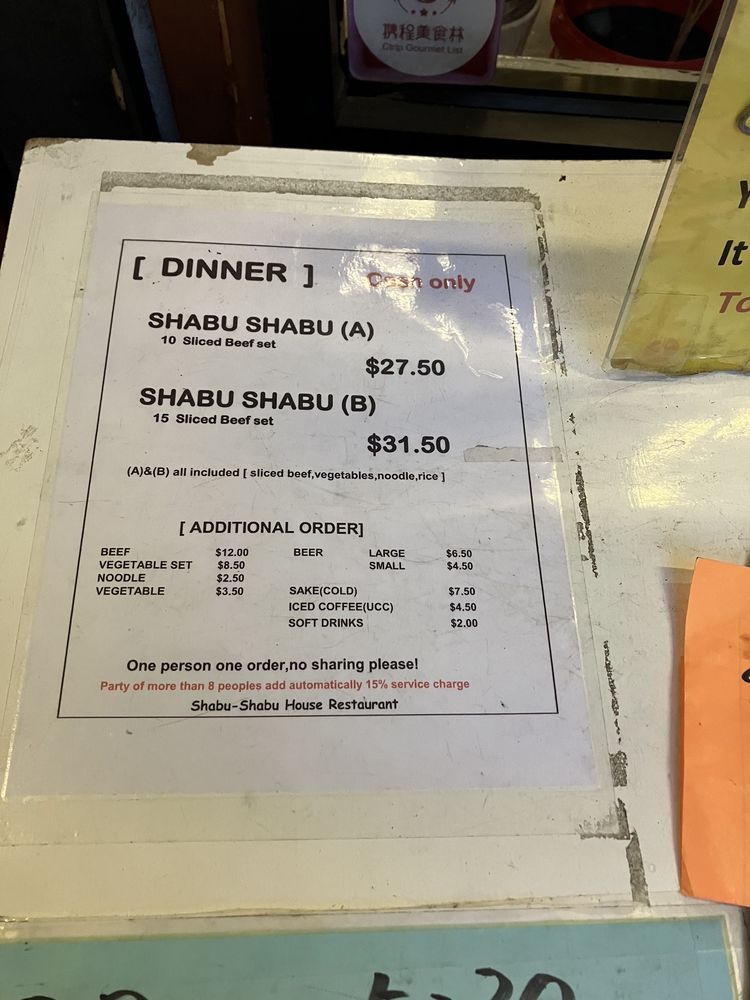 携程美食林
Ctrip Gourmet List
It
[ DINNER ] Cash only
SHABU SHABU (A)
10 Sliced Beef set
$27.50
SHABU SHABU (B)
15 Sliced Beef set
$31.50
(A)&(B) all included [ sliced beef,vegetables,noodle,rice ]
[ ADDITIONAL ORDER]
BEEF $12.00 BEER LARGE $6.50
VEGETABLE SET $8.50 SMALL $4.50
NOODLE $2.50
VEGETABLE $3.50 SAKE(COLD) $7.50
ICED COFFEE(UCC) $4.50
SOFT DRINKS $2.00
One person one order,no sharing please!
Party of more than 8 peoples add automatically 15% service charge
Shabu-Shabu House Restaurant